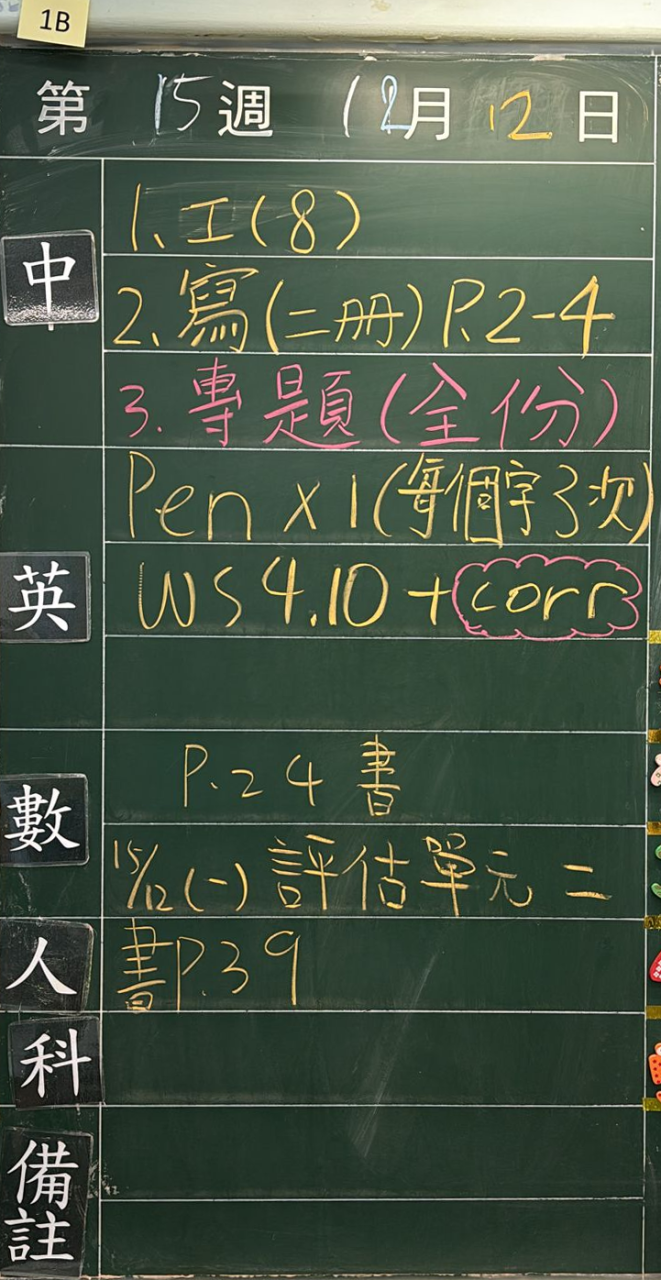 1B
第 15 週 12月 12 日
中
1、工(8)
2、寫(二册)P.2-4
3.專題(全份)
英
Pen x 1(每個字3次)
WS 4.10 + corr
數
P.24 書
15/12(一)評估單元二
人
書P.39
科
備
註